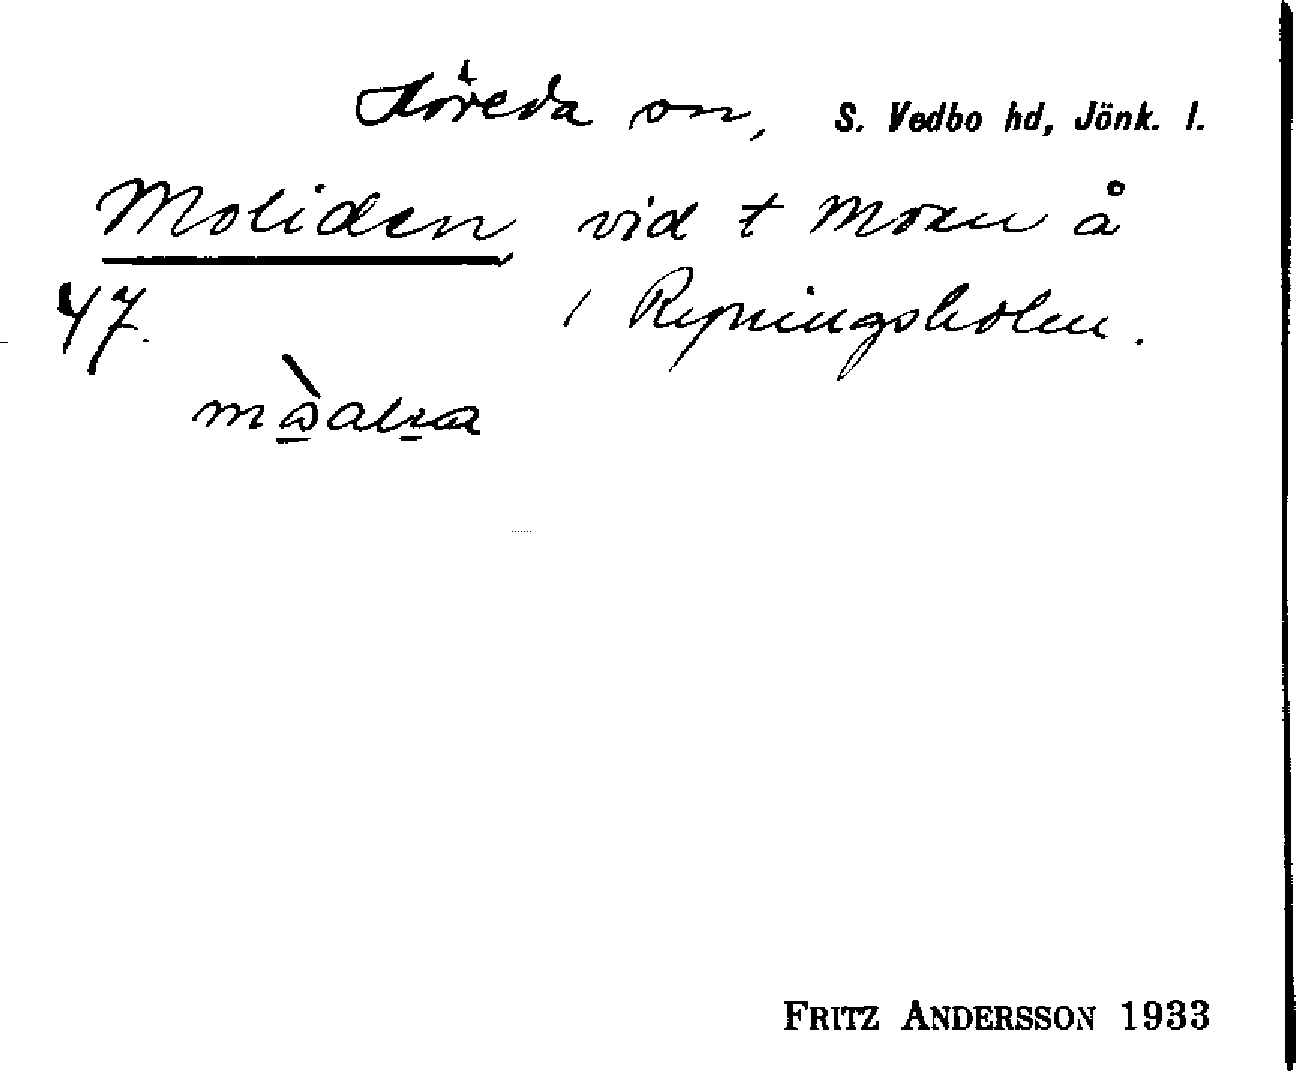 Höreda sn, S. Vedbo hd, Jönk. l.
Moliden vid t Moen å
47. / Ryningsholm.
FRITZ ANDERSSON 1933